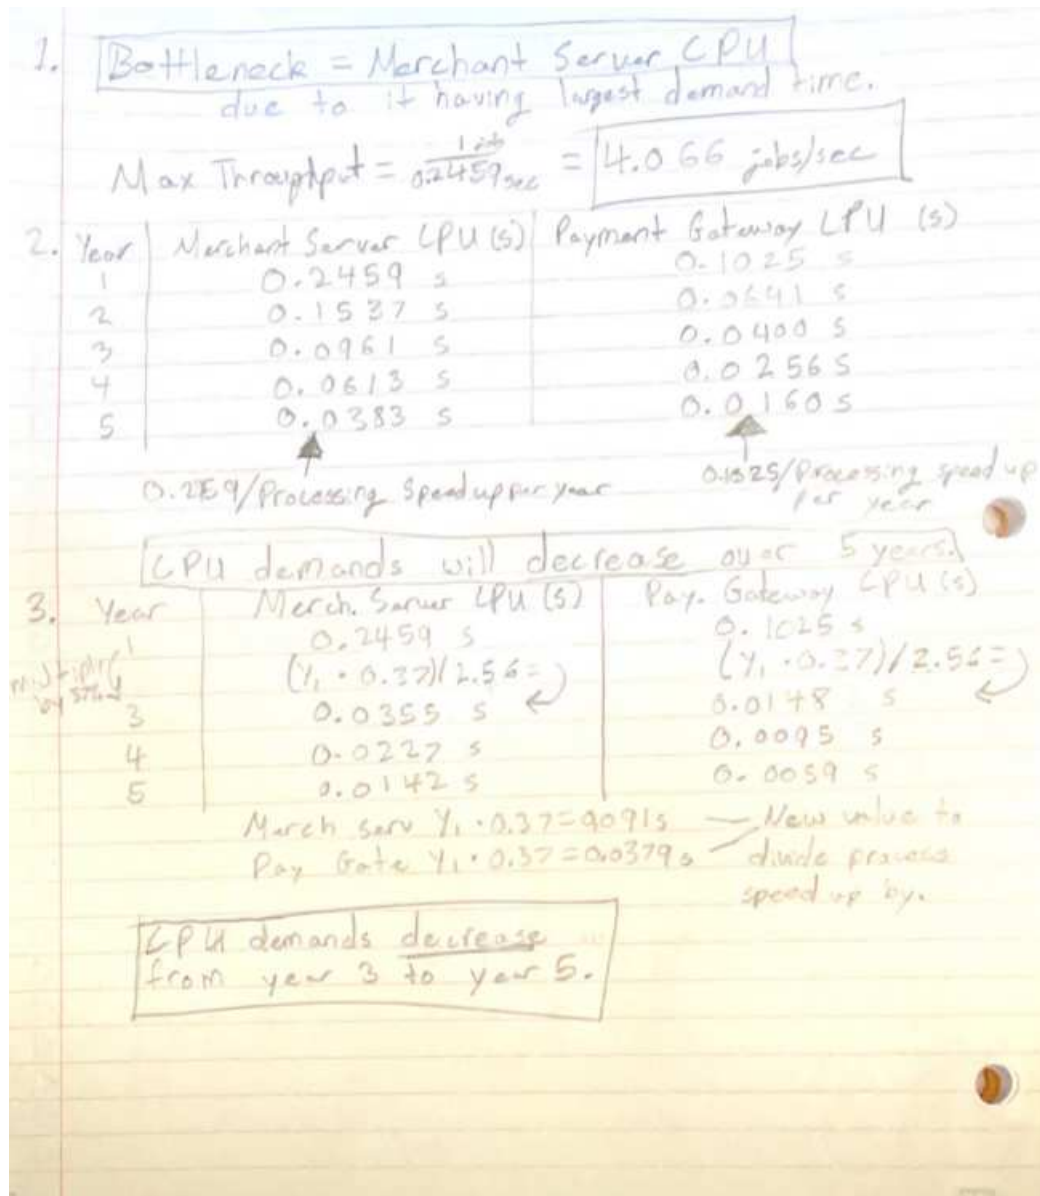 1. Bottleneck = Merchant Server CPU
due to it having largest demand time.
Max Throughput = 1 job / 0.2459 sec = 4.066 jobs/sec
2. Year Merchant Server CPU (s) Payment Gateway CPU (s)
1 0.2459 s 0.1025 s
2 0.1537 s 0.0641 s
3 0.0961 s 0.0400 s
4 0.0613 s 0.0256 s
5 0.0383 s 0.0160 s
/Processing Speed up per year
/Processing speed up
per year
CPU demands will decrease over 5 years.
3. Year Merch. Server CPU (s) Pay. Gateway CPU (s)
1 0.2459 s 0.1025 s
multiply by 37% (Y₁ · 0.37)/2.56 = (Y₁ · 0.37)/2.56 =
3 0.0355 s 0.0148 s
4 0.0227 s 0.0095 s
5 0.0142 s 0.0059 s
Merch serv Y₁ · 0.37 = 0.091 s — New value to
Pay Gate Y₁ · 0.37 = 0.0379 s divide process
speed up by.
CPU demands decrease
from year 3 to year 5.